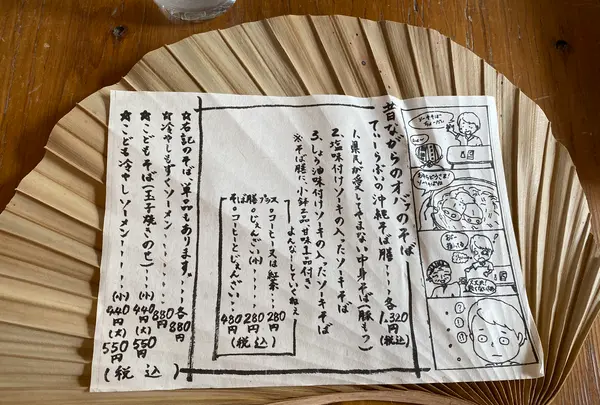 昔ながらのオバァのそば
てぃーらぶいの沖縄そば膳・・・各1,320円(税込)
1.県民が愛してやまない中身そば(豚もつ)
2.塩味付けソーキの入ったソーキそば
3.しょう油味付けソーキの入ったソーキそば
※そば膳に、小鉢2品 甘味1品付き
よんなーしていってねぇ
そば膳プラス
○コーヒー又は紅茶・・・280円
○じぇんざい(小)・・・280円
○コーヒーとじぇんざい・・480円
(税込)
☆右記のそば、単品もあります。・・・各880円
☆冷やしもずくソーメン・・・・・880円
☆こどもそば(玉子焼きのせ)・・・(小)440円(大)550円
☆こども冷やしソーメン・・・・・(小)440円(大)550円
(税込)